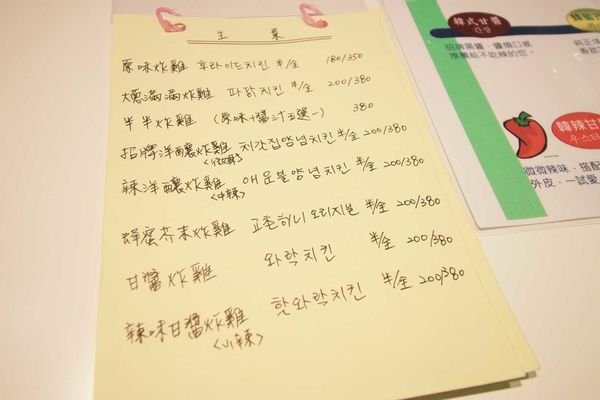 主菜
原味炸雞 후라이드치킨 半/全 180/350
大蔥滿滿炸雞 파닭치킨 半/全 200/380
半半炸雞 (原味+醬汁五選一) 380
招牌洋釀炸雞 치킨집양념치킨 半/全 200/380
辣洋釀炸雞 매운불양념치킨 半/全 200/380
<中辣>
蜂蜜芥末炸雞 허니 오리지널 半/全 200/380
甘醬炸雞 와락치킨 半/全 200/380
辣味甘醬炸雞 핫와락치킨 半/全 200/380
<小辣>
韓式甘醬
간장
招牌黑醬
推薦給不吃辣的您。
韓辣甘
우스터
微微辣味，搭配
外皮，一試愛